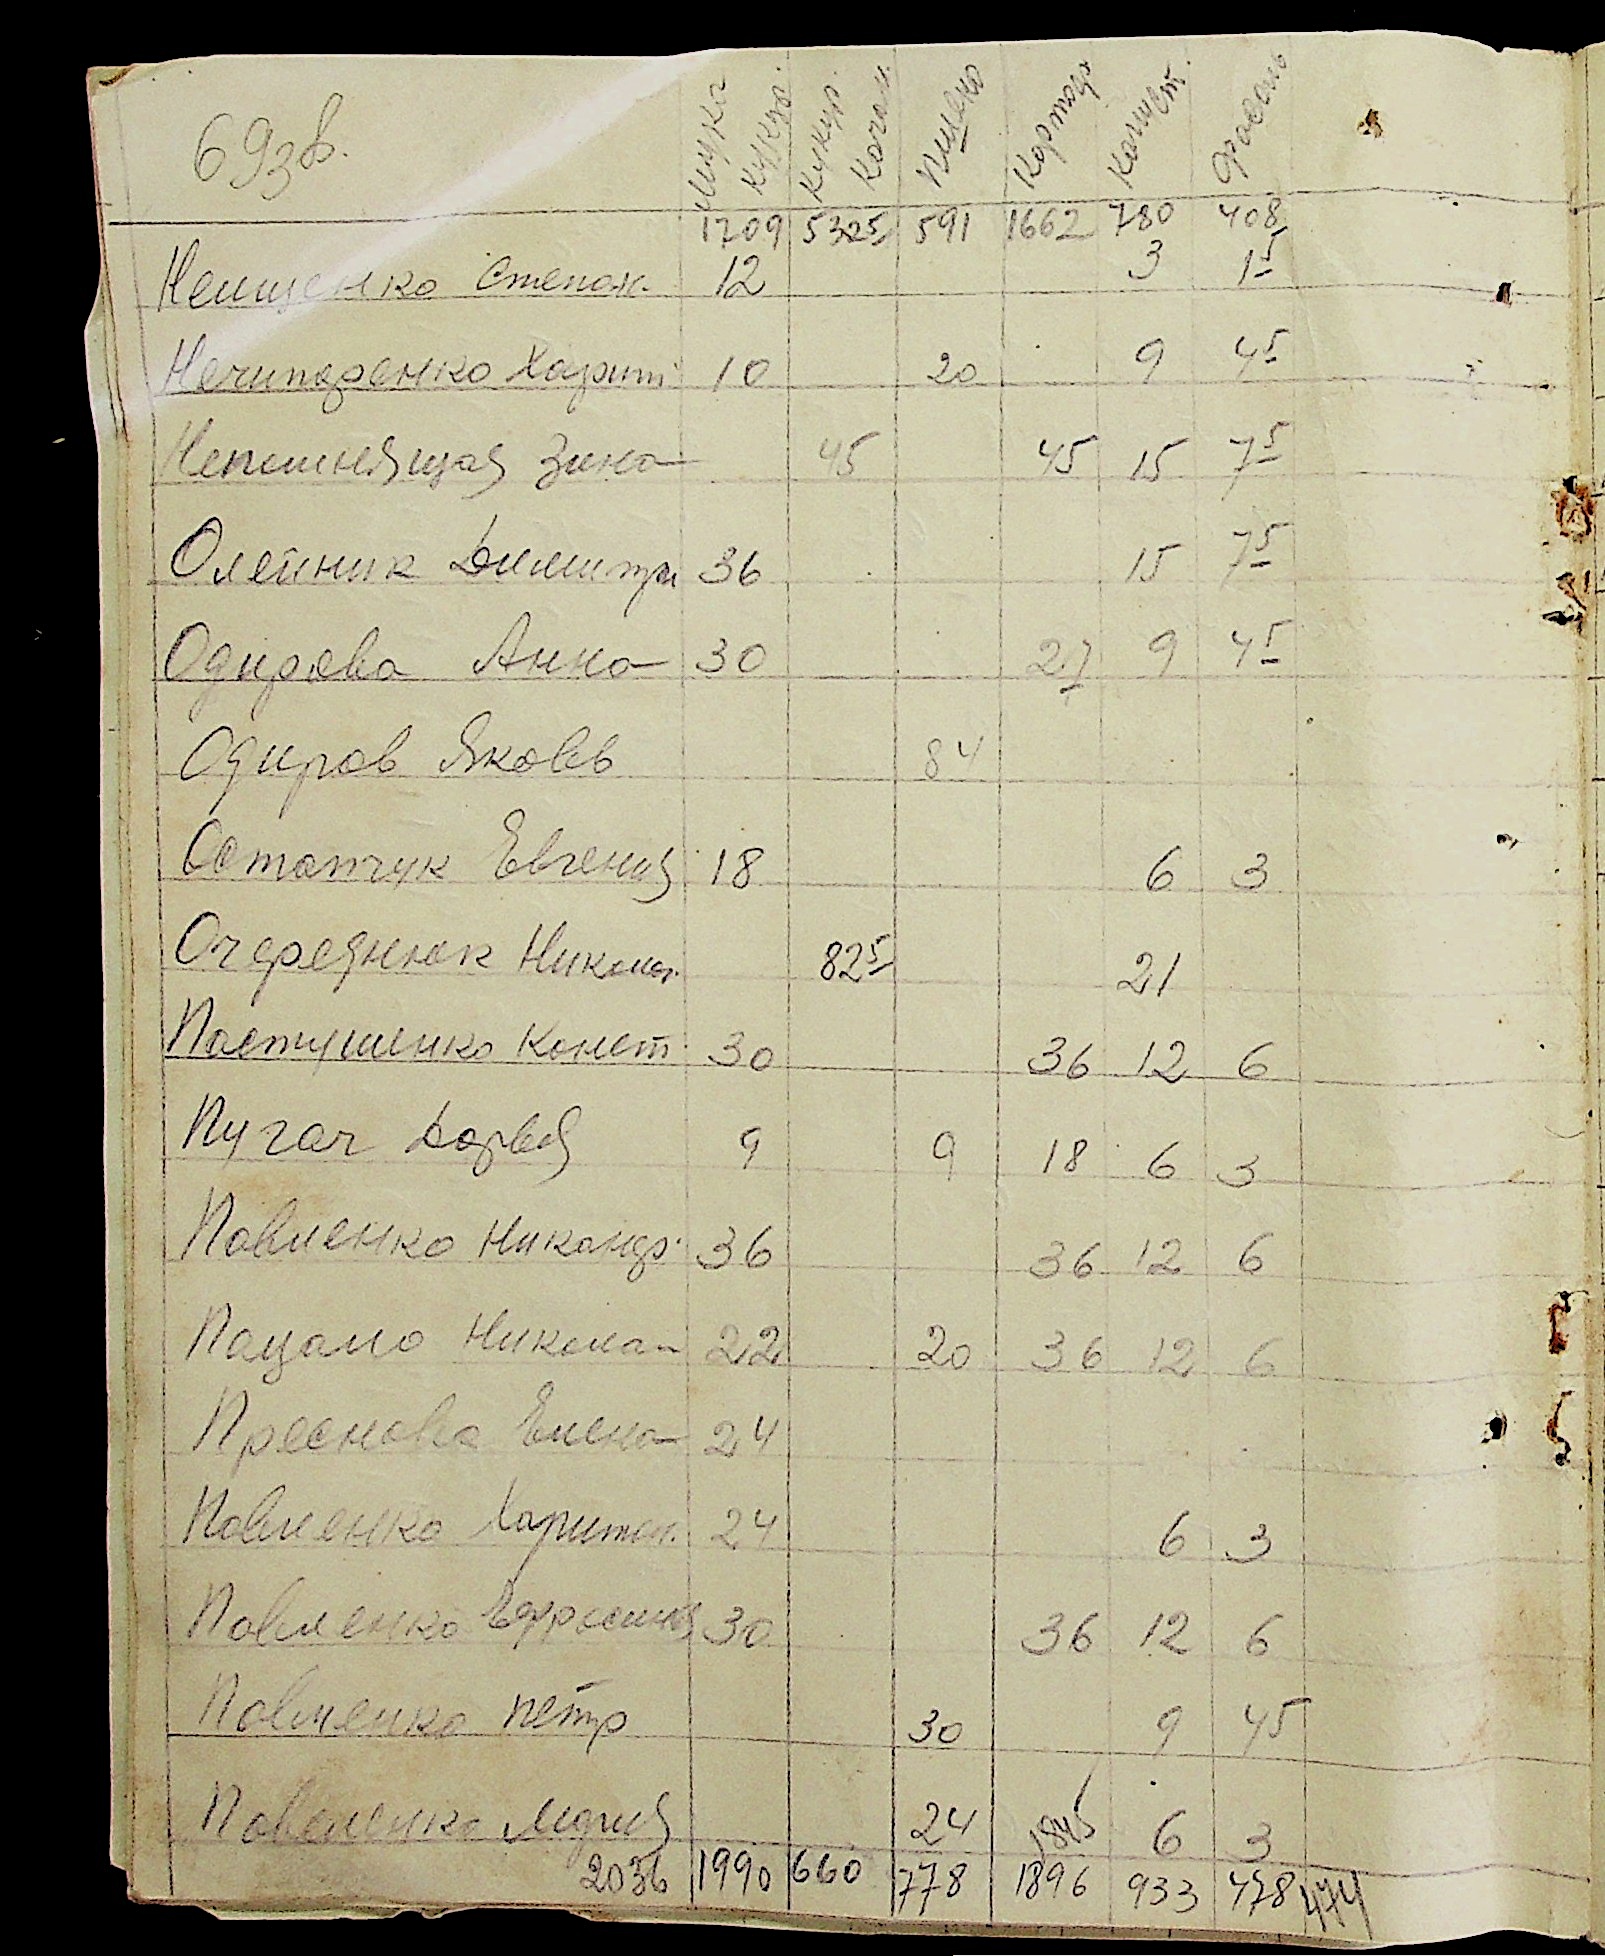 693 в.
Мука кукур. Кукур. Кочан. Пшено Картоф Капуст. Фасоль
1709 5325 591 1662 780 408
Нещенко Степан. 12 3 1 5
Нечипоренко Харит 10 20 9 4 5
Непомнящая Зина 45 45 15 7 5
Олейник Димитри 36 15 7 5
Одирова Анна 30 27 9 4 5
Одиров Яковъ 84
Остапчук Евгения 18 6 3
Очереднюк Никол. 82 5 21
Пастушенко Конст. 30 36 12 6
Пугач Дарья 9 9 18 6 3
Павленко Никандр. 36 36 12 6
Пацало Никола 22 20 36 12 6
Преснова Елена 24
Павленко Харитон. 24 6 3
Павленко Ефросиния 30 36 12 6
Павленко Пётр 30 9 45
Павленко Мария 24 1845 6 3
2036 1990 660 778 1896 933 478 474